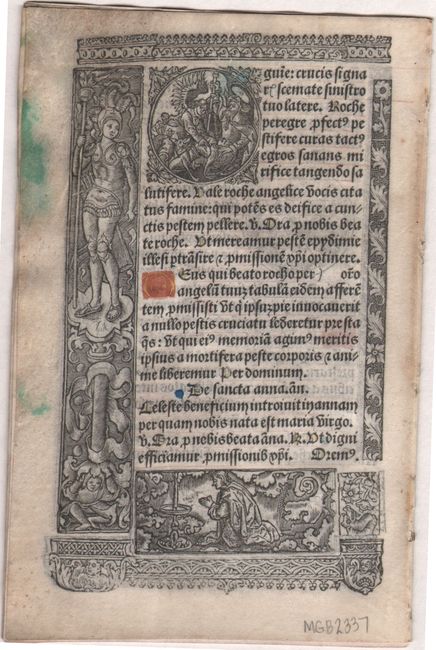 guie: crucis signa
r scemate sinistro
tuo latere. Roche
peregre ꝓfectꝰ pe
stifere curas tactꝰ
egros sanans mi
rifice tangendo sa
lutifere. Uale roche angelice vocis cita
tus famine: qui potēs es deifice a cun-
ctis pestem pellere. v. Ora ꝓ nobis bea
te roche. Ut mereamur pestē epydimie
illesi ptrāsire ⁊ ꝓmissionē xp̄i optinere.
Eus qui beato rocho per oro
angelū tuū tabulā eidem afferē
tem ꝓmisisti vt ꝙ ipsuz pie inuocauerit
a nullo pestis cruciatu lederetur presta
q̄s: vt qui eiꝰ memoriā agimꝰ meritis
ipsius a mortifera peste corporis ⁊ ani-
me liberemur Per dominum.
De sancta anna. an̄.
Celeste beneficium introiuit in annam
per quam nobis nata est maria virgo.
v. Ora ꝓ nobis beata āna. R. Ut digni
efficiamur ꝓmissionib xp̄i. Oremꝰ.
MGB2337